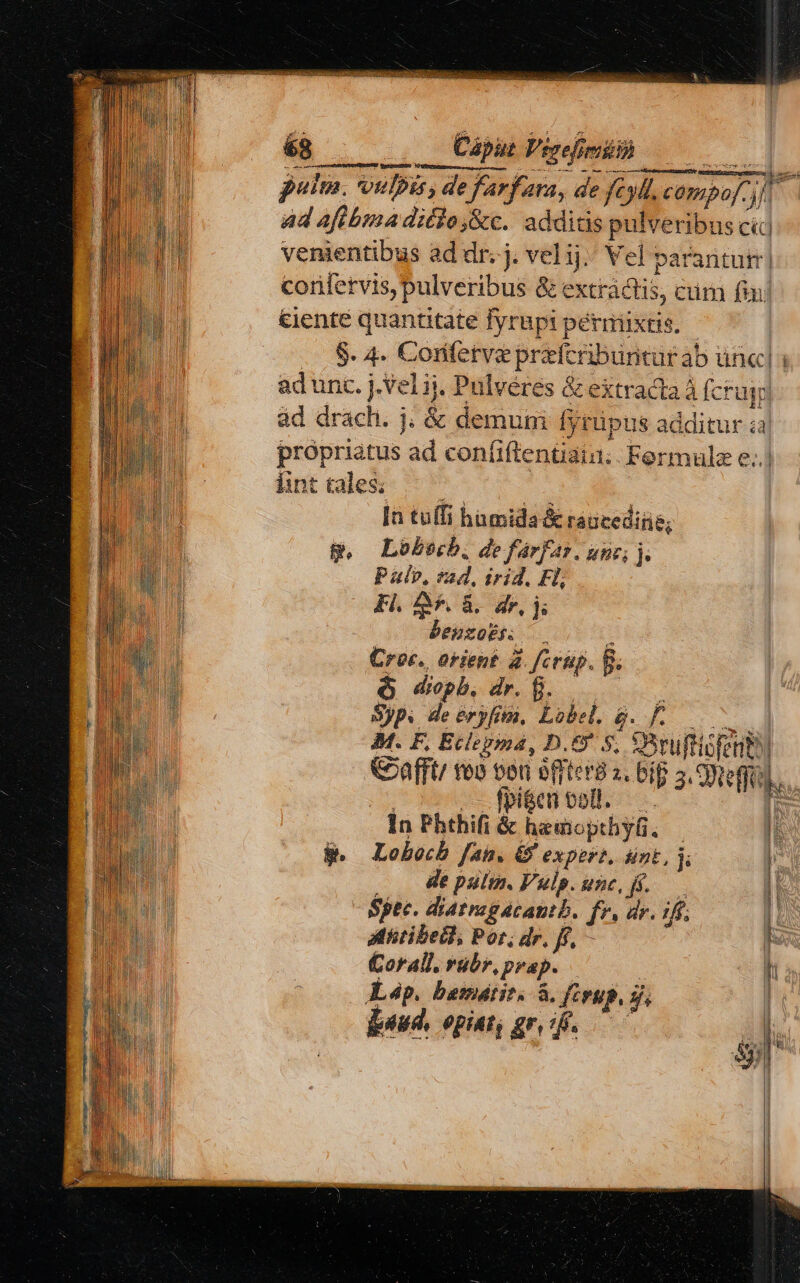 68 Caput Vigesimum
pulm. vulpis, de farfara, de scyll. compos.
ad asthma dicto, &c. additis pulveribus
venientibus ad dr. j. vel ij. Vel parantur
conservis, pulveribus & extractis, cum
ciente quantitate syrupi permixtis.
§. 4. Conservæ præscribuntur ab
ad unc. j. vel ij. Pulveres & extracta à
ad drach. j. & demum syrupus additur
propriatus ad consistentiam. Formulæ
sint tales.
In tussi humida & raucedine,
℞. Lohoch. de farfar. unc. j.
Pulv. rad. irid. Fl.
Fl. ā. dr. j.
benzoës.
Croc. orient ā. scrup. ß.
dioph. dr. ß.
Syp. de erysim. Lobel. q. s.
M. F. Eclegma, D. & S. Brustlösent
Safft/ wo von öffters 2. biß 3. Messer
spitzen voll.
In Phthisi & hæmopthysi.
℞. Lohoch san. & expert. unt. j.
de pulm. Vulp. unc. ß.
Spec. diatragacanth. fr. dr. iß.
Antihect. Pot. dr. ß.
Corall. rubr. præp.
Lap. hæmatit. ā. scrup. ij.
Laud. opiat. gr. iß.